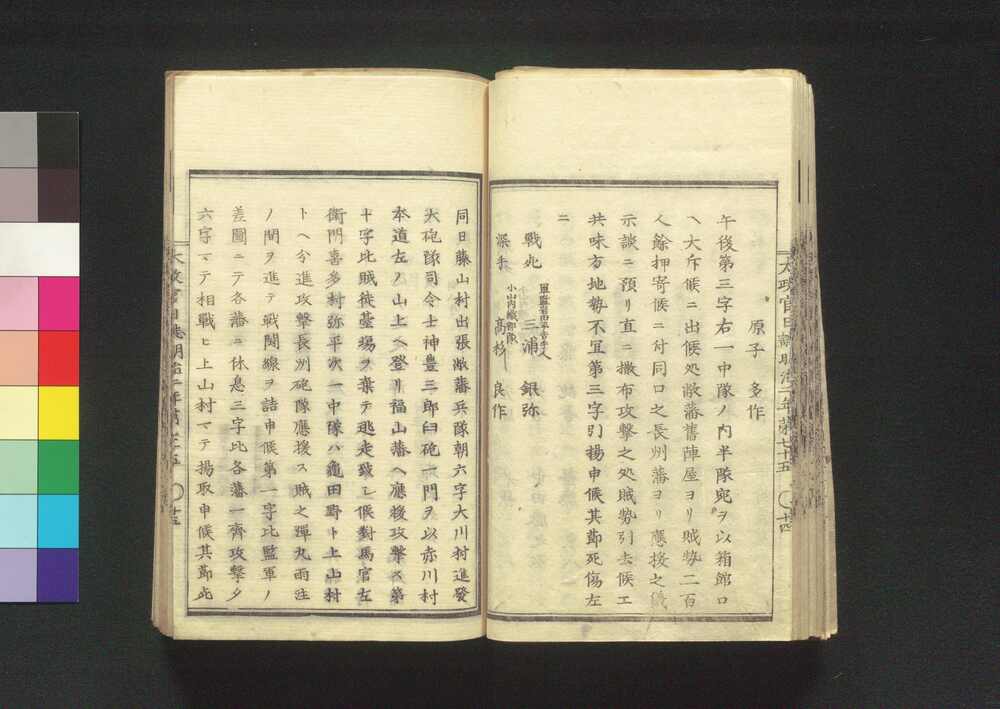 原子　多作
午後第三字右一中隊ノ内半隊宛ヲ以箱館口
ヘ大斥候ニ出候処敝藩舊陣屋ヨリ賊勢二百
人餘押寄候ニ付同口之長州藩ヨリ應援之儀
示談ニ預リ直ニ撒布攻撃之処賊勢引去候エ
共味方地勢不冝第三字引揚申候其節死傷左
ニ
戰死　三浦　銀弥
小山内織部隊
深手　高杉　良作
大政官日誌明治二年第七十五　〇十四
同日藤山村出張敝藩兵隊朝六字大川村進發
大砲隊司令士神豊三郎臼砲一門ヲ以赤川村
本道左ノ山上ヘ登リ福山藩ヘ應援攻撃ス第
十字比賊徒臺場ヲ棄テ逃走致シ候對馬官左
衛門喜多村弥平次一中隊ハ亀田野ト上山村
トヘ今進攻撃長州砲隊應援ス賊之彈丸雨注
ノ間ヲ進テ戰鬪線ヲ詰申候第一字比監軍ノ
差圖ニテ各藩ニ休息三字比各藩一齊攻撃夕
六字マテ相戰ヒ上山村マテ揚取申候其節死